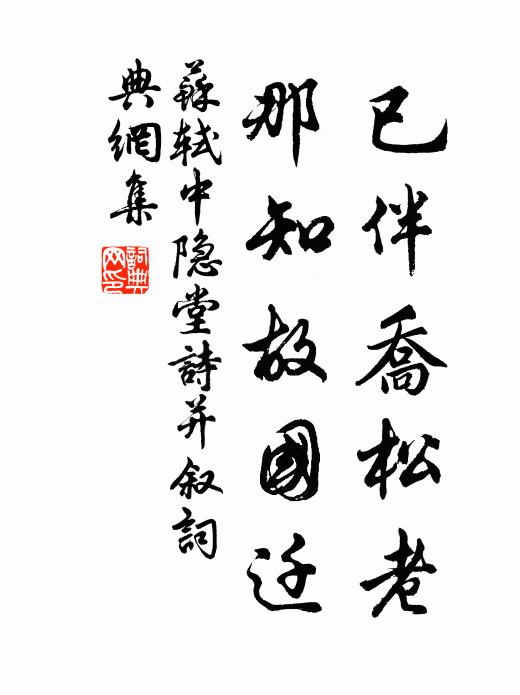 已伴喬松老
那知故國迁
蘇軾中隐堂詩并叙詞
典網集
詞典
网印